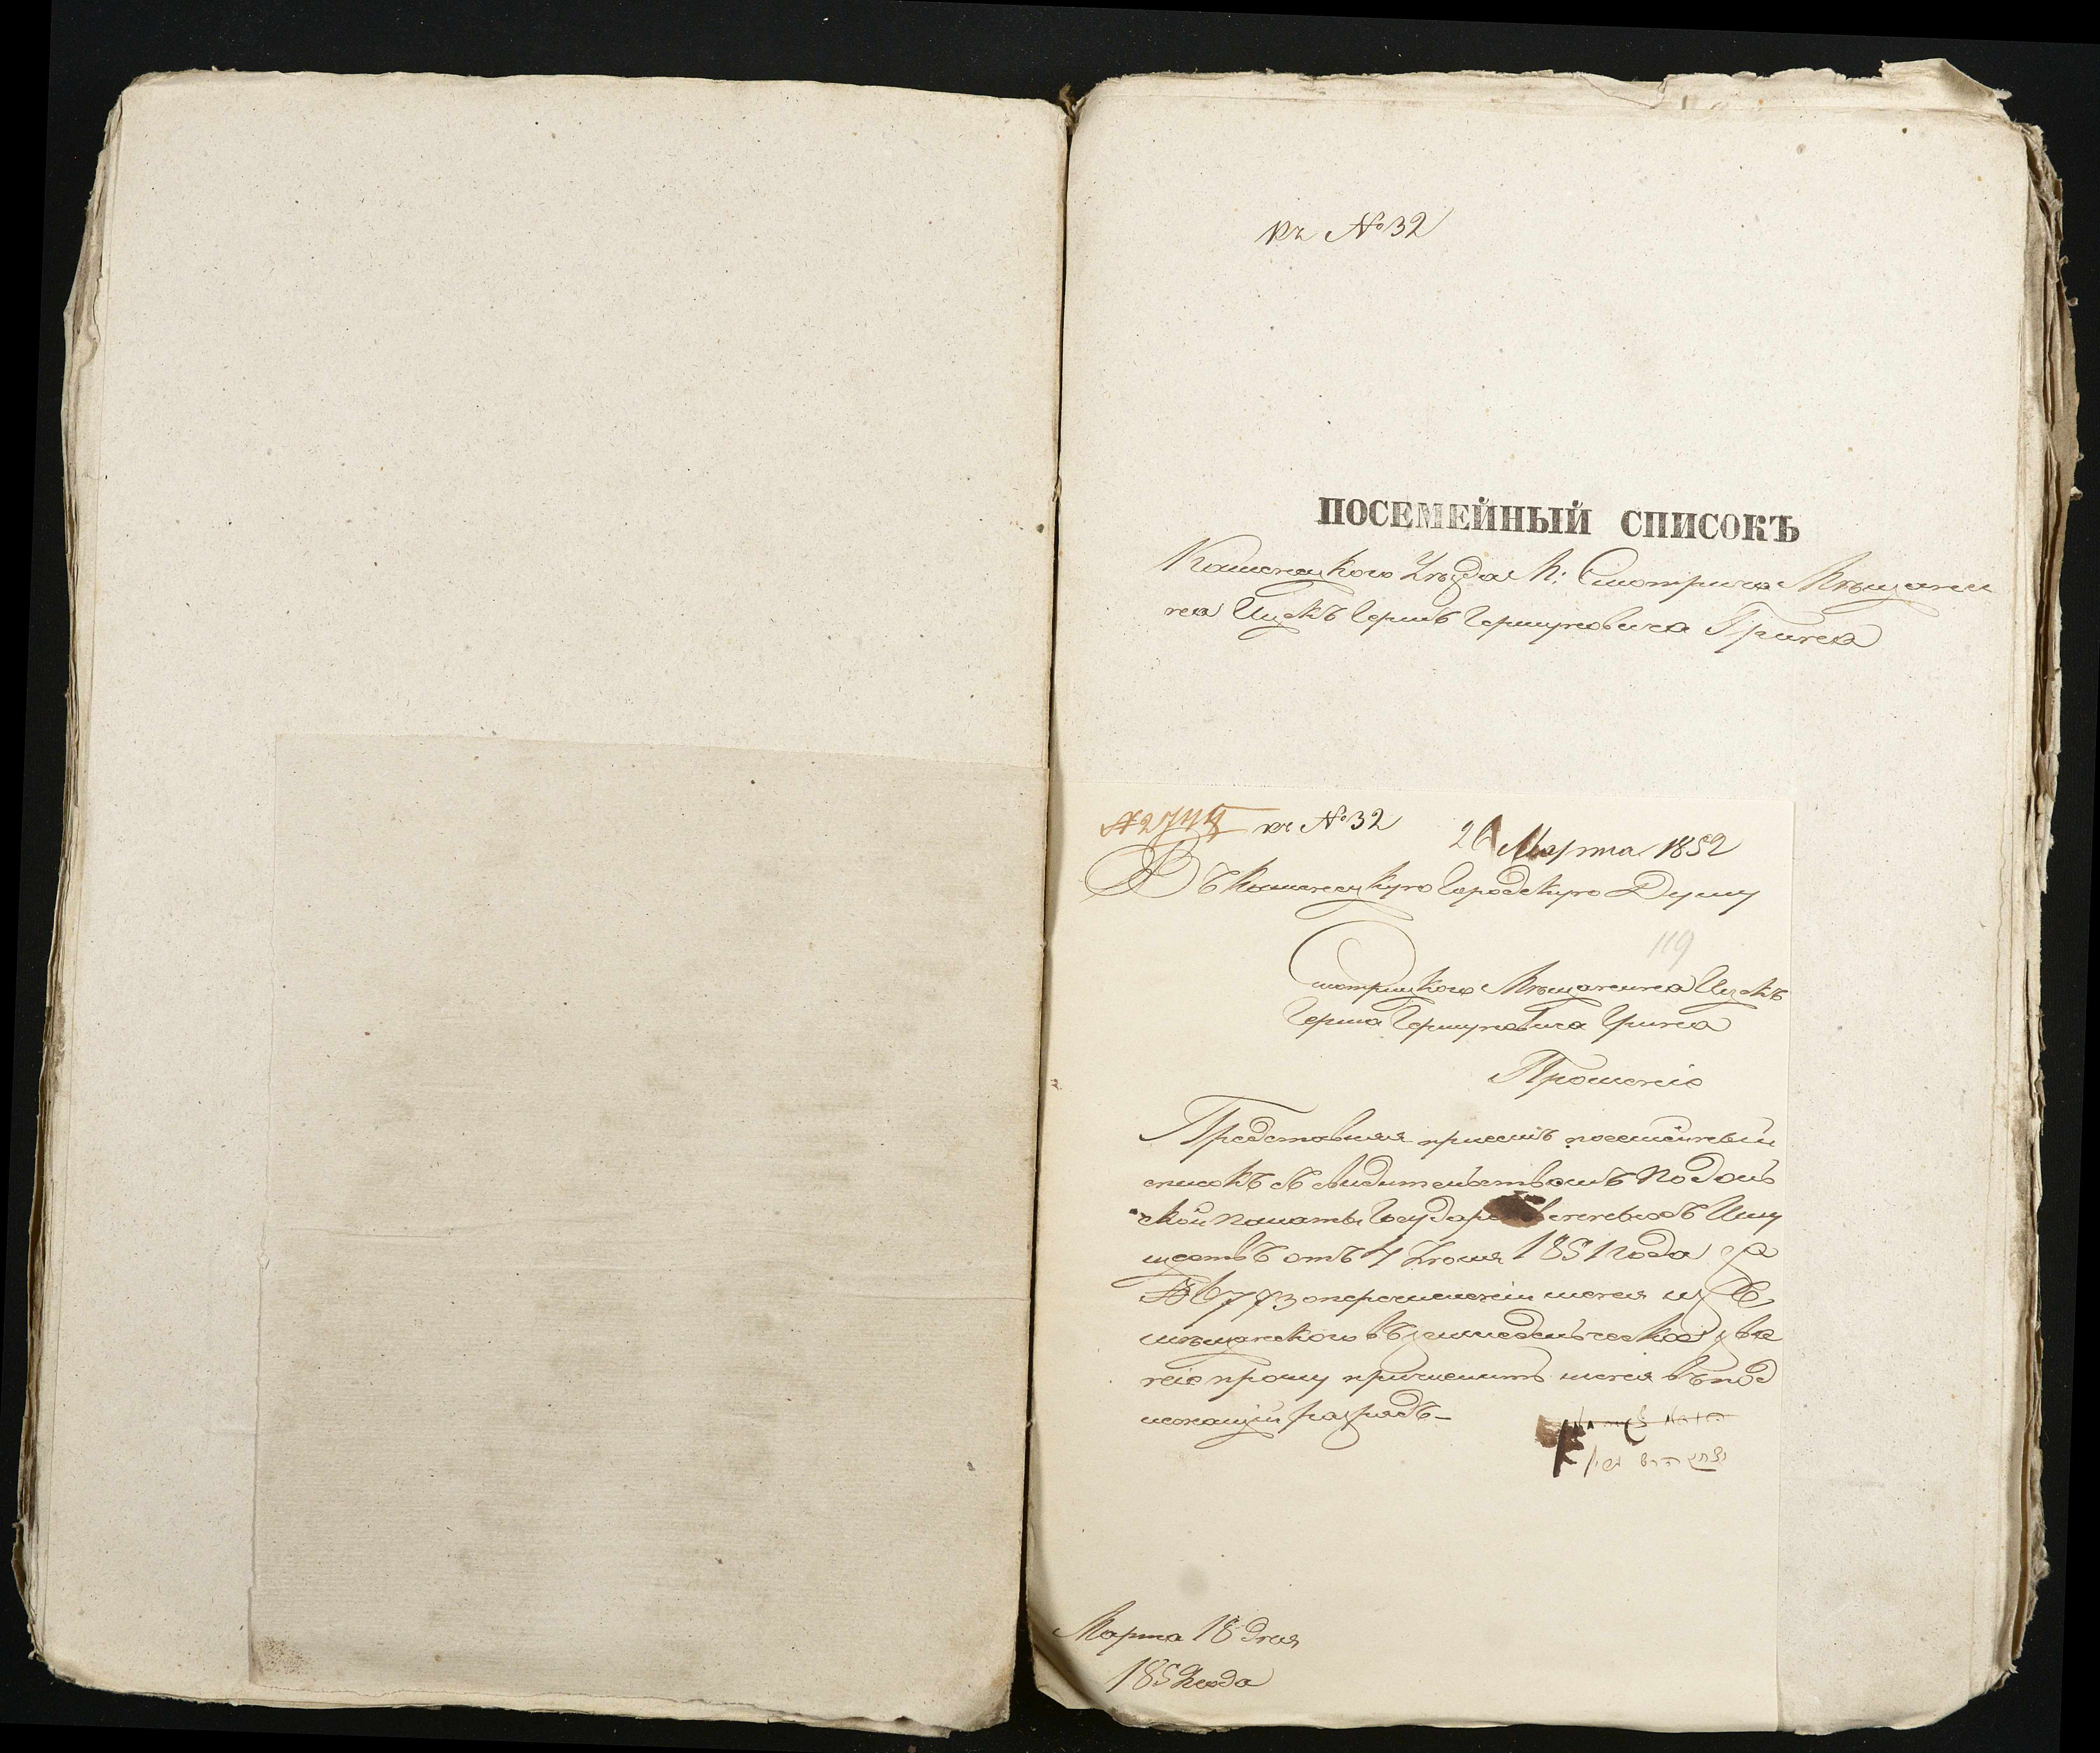 къ №32
ПОСЕМЕЙНЫЙ СПИСОКЪ
Каменецкого Уѣзда М: Смотрича Мѣщани
на Ицкъ Гершъ Гершуновича Грина
№2744 къ №32
26 Марта 1852
Въ Каменецкую Городскую Думу
119
Смотрицкого Мѣщанина Ицкъ
Герша Гершуновича Грина
Прошеніе
Представляя присемъ посемейный
списокъ съ свидительствомъ Подоль
ской палаты Государственныхъ Иму
ществъ отъ 4 Іюля 1851 года за
№6773 оперечисленіи меня изъ
мѣщанского въ земледельческое зва
ніе прошу причислить меня въ под
лежащій разрядъ
יצחק הרש גרין
Марта 18 дня
1852 года